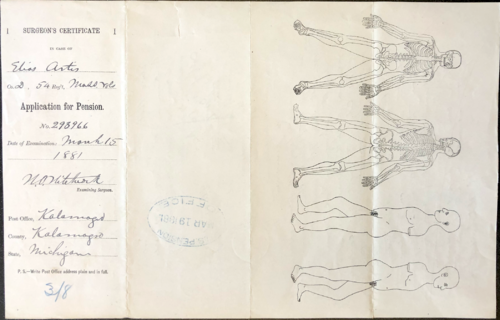 [ SURGEON'S CERTIFICATE ]
IN CASE OF
Elias Artis
Co. D, 54 Reg't, Vols
Application for Pension.
No. 293966
Date of Examination: March 15
1881
Examining Surgeon.
Post Office, Kalamazoo
County, Kalamazoo
State, Michigan
P. S.—Write Post Office address plain and in full.
3/8